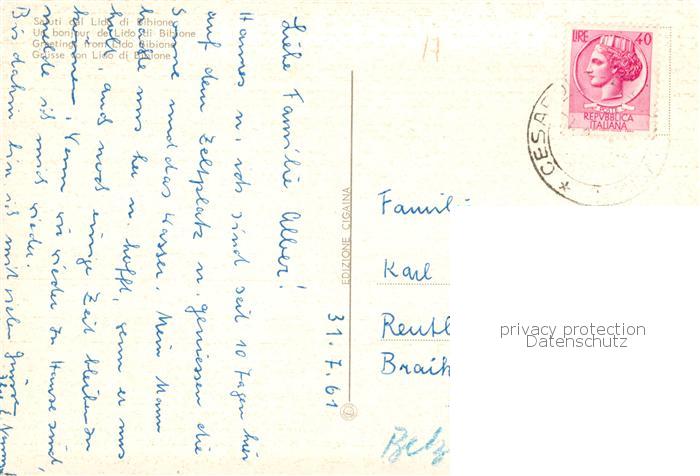 Saluti dal Lido di Bibione
Un bonjour de Lido di Bibione
Greetings from Lido Bibione
Grüsse von Lido di Bibione
Liebe Familie Alber!
Hannes u. ich sind seit 10 Tagen hier
auf dem Zeltplatz u. geniessen die
Sonne und das Wasser. Mein Mann
brachte uns her u. hofft, wenn er uns
holt, auch noch einige Zeit bleiben zu
können. Wenn wir wieder zu Hause sind,
melde ich mich wieder.
Bis dahin bin ich mit vielen Grüssen
31.7.61
EDIZIONE CIGAINA
17
LIRE 40
POSTE
REPVBBLICA
ITALIANA
* CESAR
Famili
Karl
Reutl
Braik
privacy protection
Datenschutz